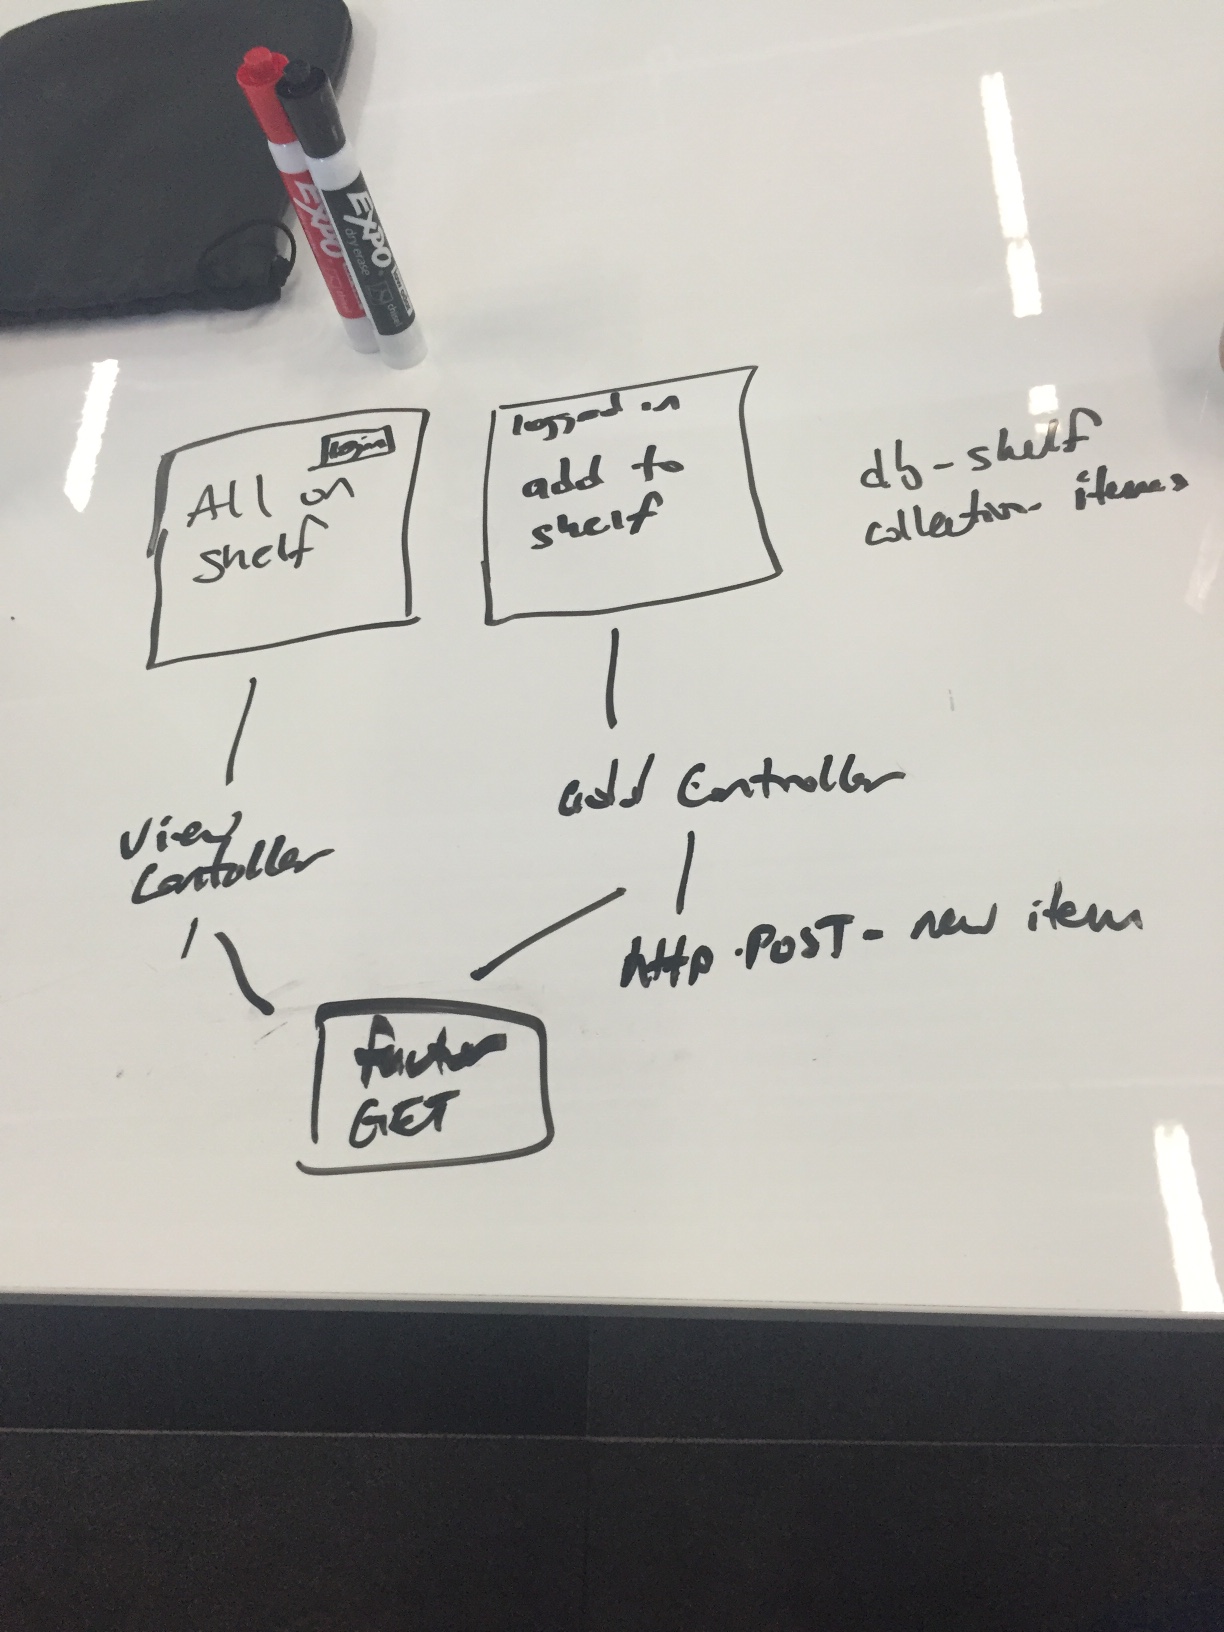 EXPO
EXPO
dry erase
chisel
login
All on
shelf
logged in
add to
shelf
db - shelf
collection - items
View
Contoller
add Controller
http.POST - new item
GET